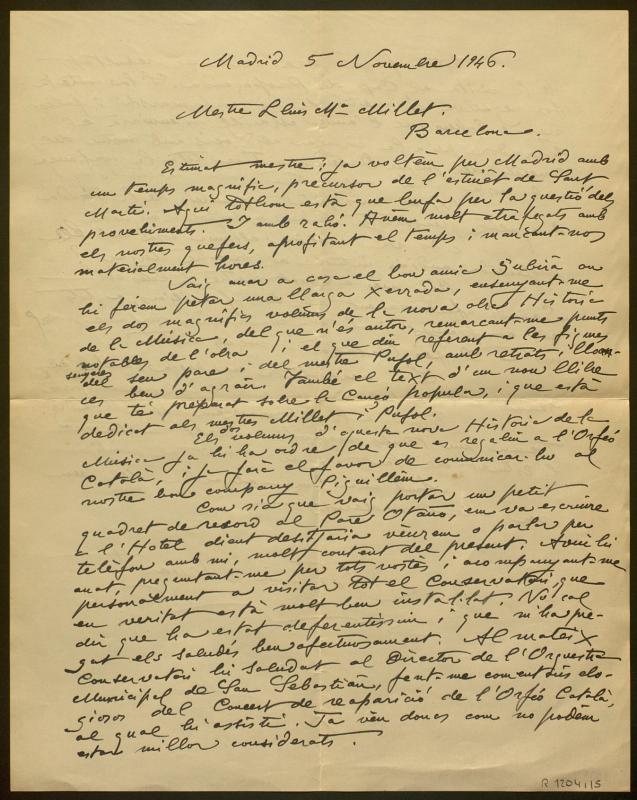 Madrid 5 Novembre 1946.
Mestre Lluis Mª Millet.
Barcelona.
Estimat mestre: ja voltem per Madrid amb
un temps magnific, precursor de l'estiuet de Sant
Martí. Aquí tothom està que bufa per la questió dels
proveiments. I amb rahó. Anem molt atrafegats amb
els nostres quefers, aprofitant el temps i menjant-nos
materialment hores.
Vaig anar a casa el bon amic Subirà on
hi ferem petar una llarga xerrada, ensenyant-me
els dos magnífics volums de la nova obra Historia
de la Música, del que n'és autor, remarcant-me punts
notables de l'obra i el que diu referent a les figures
senyeres
del seu pare i del mestre Pujol, amb retrats i
ces ben d'agrair. També el text d'un nou llibre
que té preparat sobre la Cançó popular, i que està
dedicat als mestres Millet i Pujol.
Els dos volums d'aquesta nova Historia de la
Música ja hi ha ordre de que es regalin a l'Orfeó
Català, i ja farà el favor de comunicar-ho al
nostre bon company Piguillem.
Com sia que vaig portar un petit
quadret de record al Pare Otaño, em va escriure
a l'Hotel dient desitjaria veurem o parlar per
telèfon amb mi, molt content del present. Avui hi
anat, preguntant-me per tots vostès i acompanyant-me
personalment a visitar tot el Conservatori, que
en veritat està molt ben instal·lat. No cal
dir que ha estat deferentissim i que m'ha pre-
gat els saludés ben afectuosament. Al mateix
Conservatori hi saludat al Director de l'Orquestra
Municipal de San Sebastián, fent-me comentaris elo-
giosos del Concert de reaparició de l'Orfeó Català,
al qual hi assistí. Ja veu doncs com no podem
estar millor considerats.
R 1204 / 5